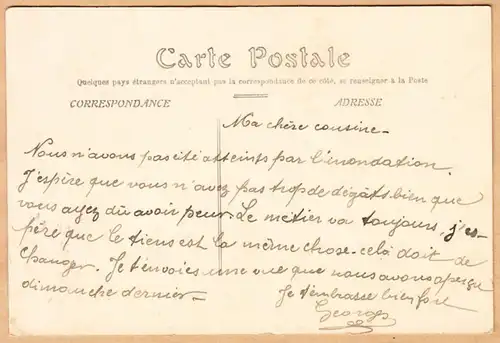 Carte Postale
Quelques pays étrangers n'acceptant pas la correspondance de ce côté, se renseigner à la Poste
CORRESPONDANCE
ADRESSE
Ma chère cousine -
Nous n'avons pas été atteints par l'inondation.
J'espère que vous n'avez pas trop de dégâts bien que
vous ayez dû avoir peur. Le métier va toujours, j'es-
père que le tiens est la même chose. celà doit de
changer. Je t'envoies une vue que nous avons aperçu
dimanche dernier -
Je t'embrasse bien fort
Georges